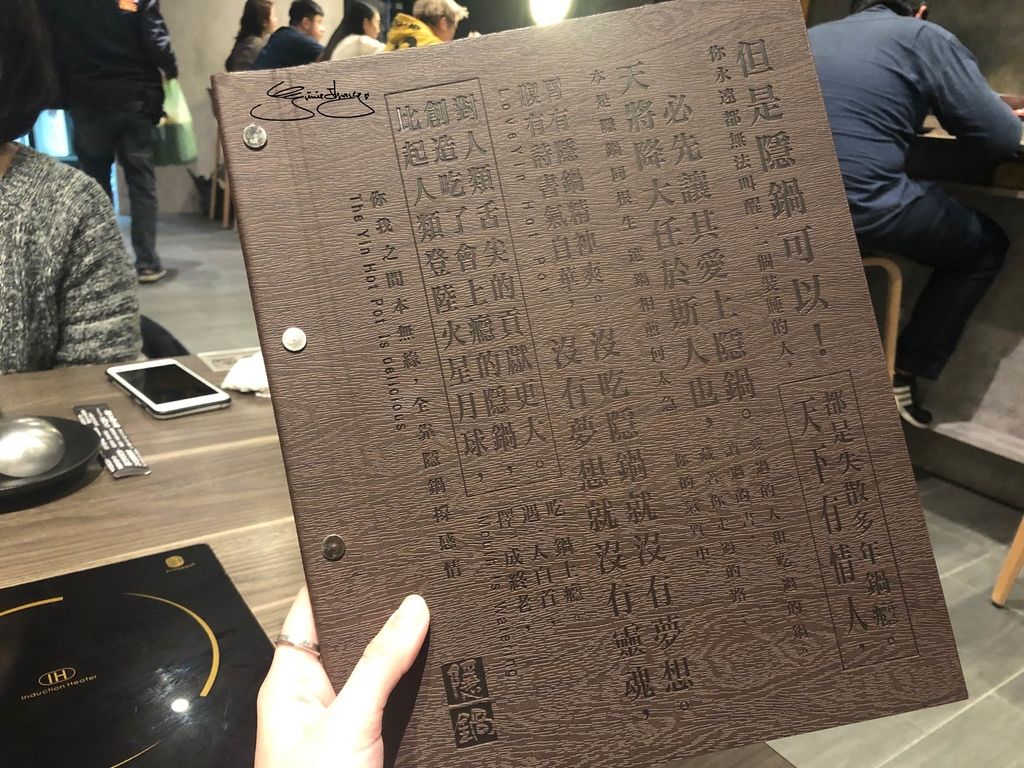 The Yin Hot Pot is delicious
你我之間本無緣,全靠隱鍋撐感情
比起人類登陸火星月球,
創造吃了會上癮的隱鍋,
對人類舌尖的貢獻更大。
Mouth is Watering
擇 成終老,
遇一人白首,
吃一鍋上癮。
Love Yin Hot pot
腹有詩書氣自華,
胃有隱鍋精神爽。
沒有夢想就沒有靈魂,
沒吃隱鍋就沒有夢想。
本是隱鍋同根生 鍋相煎何太急
天將降大任於斯人也,
必先讓其愛上隱鍋。
你的氣質中,
藏著你走過的路,
讀過的書,
愛過的人和吃過的鍋。
你永遠都無法叫醒一個裝睡的人,
但是隱鍋可以!
天下有情人,
都是失散多年鍋癮。
隱鍋
IH
Induction Heater